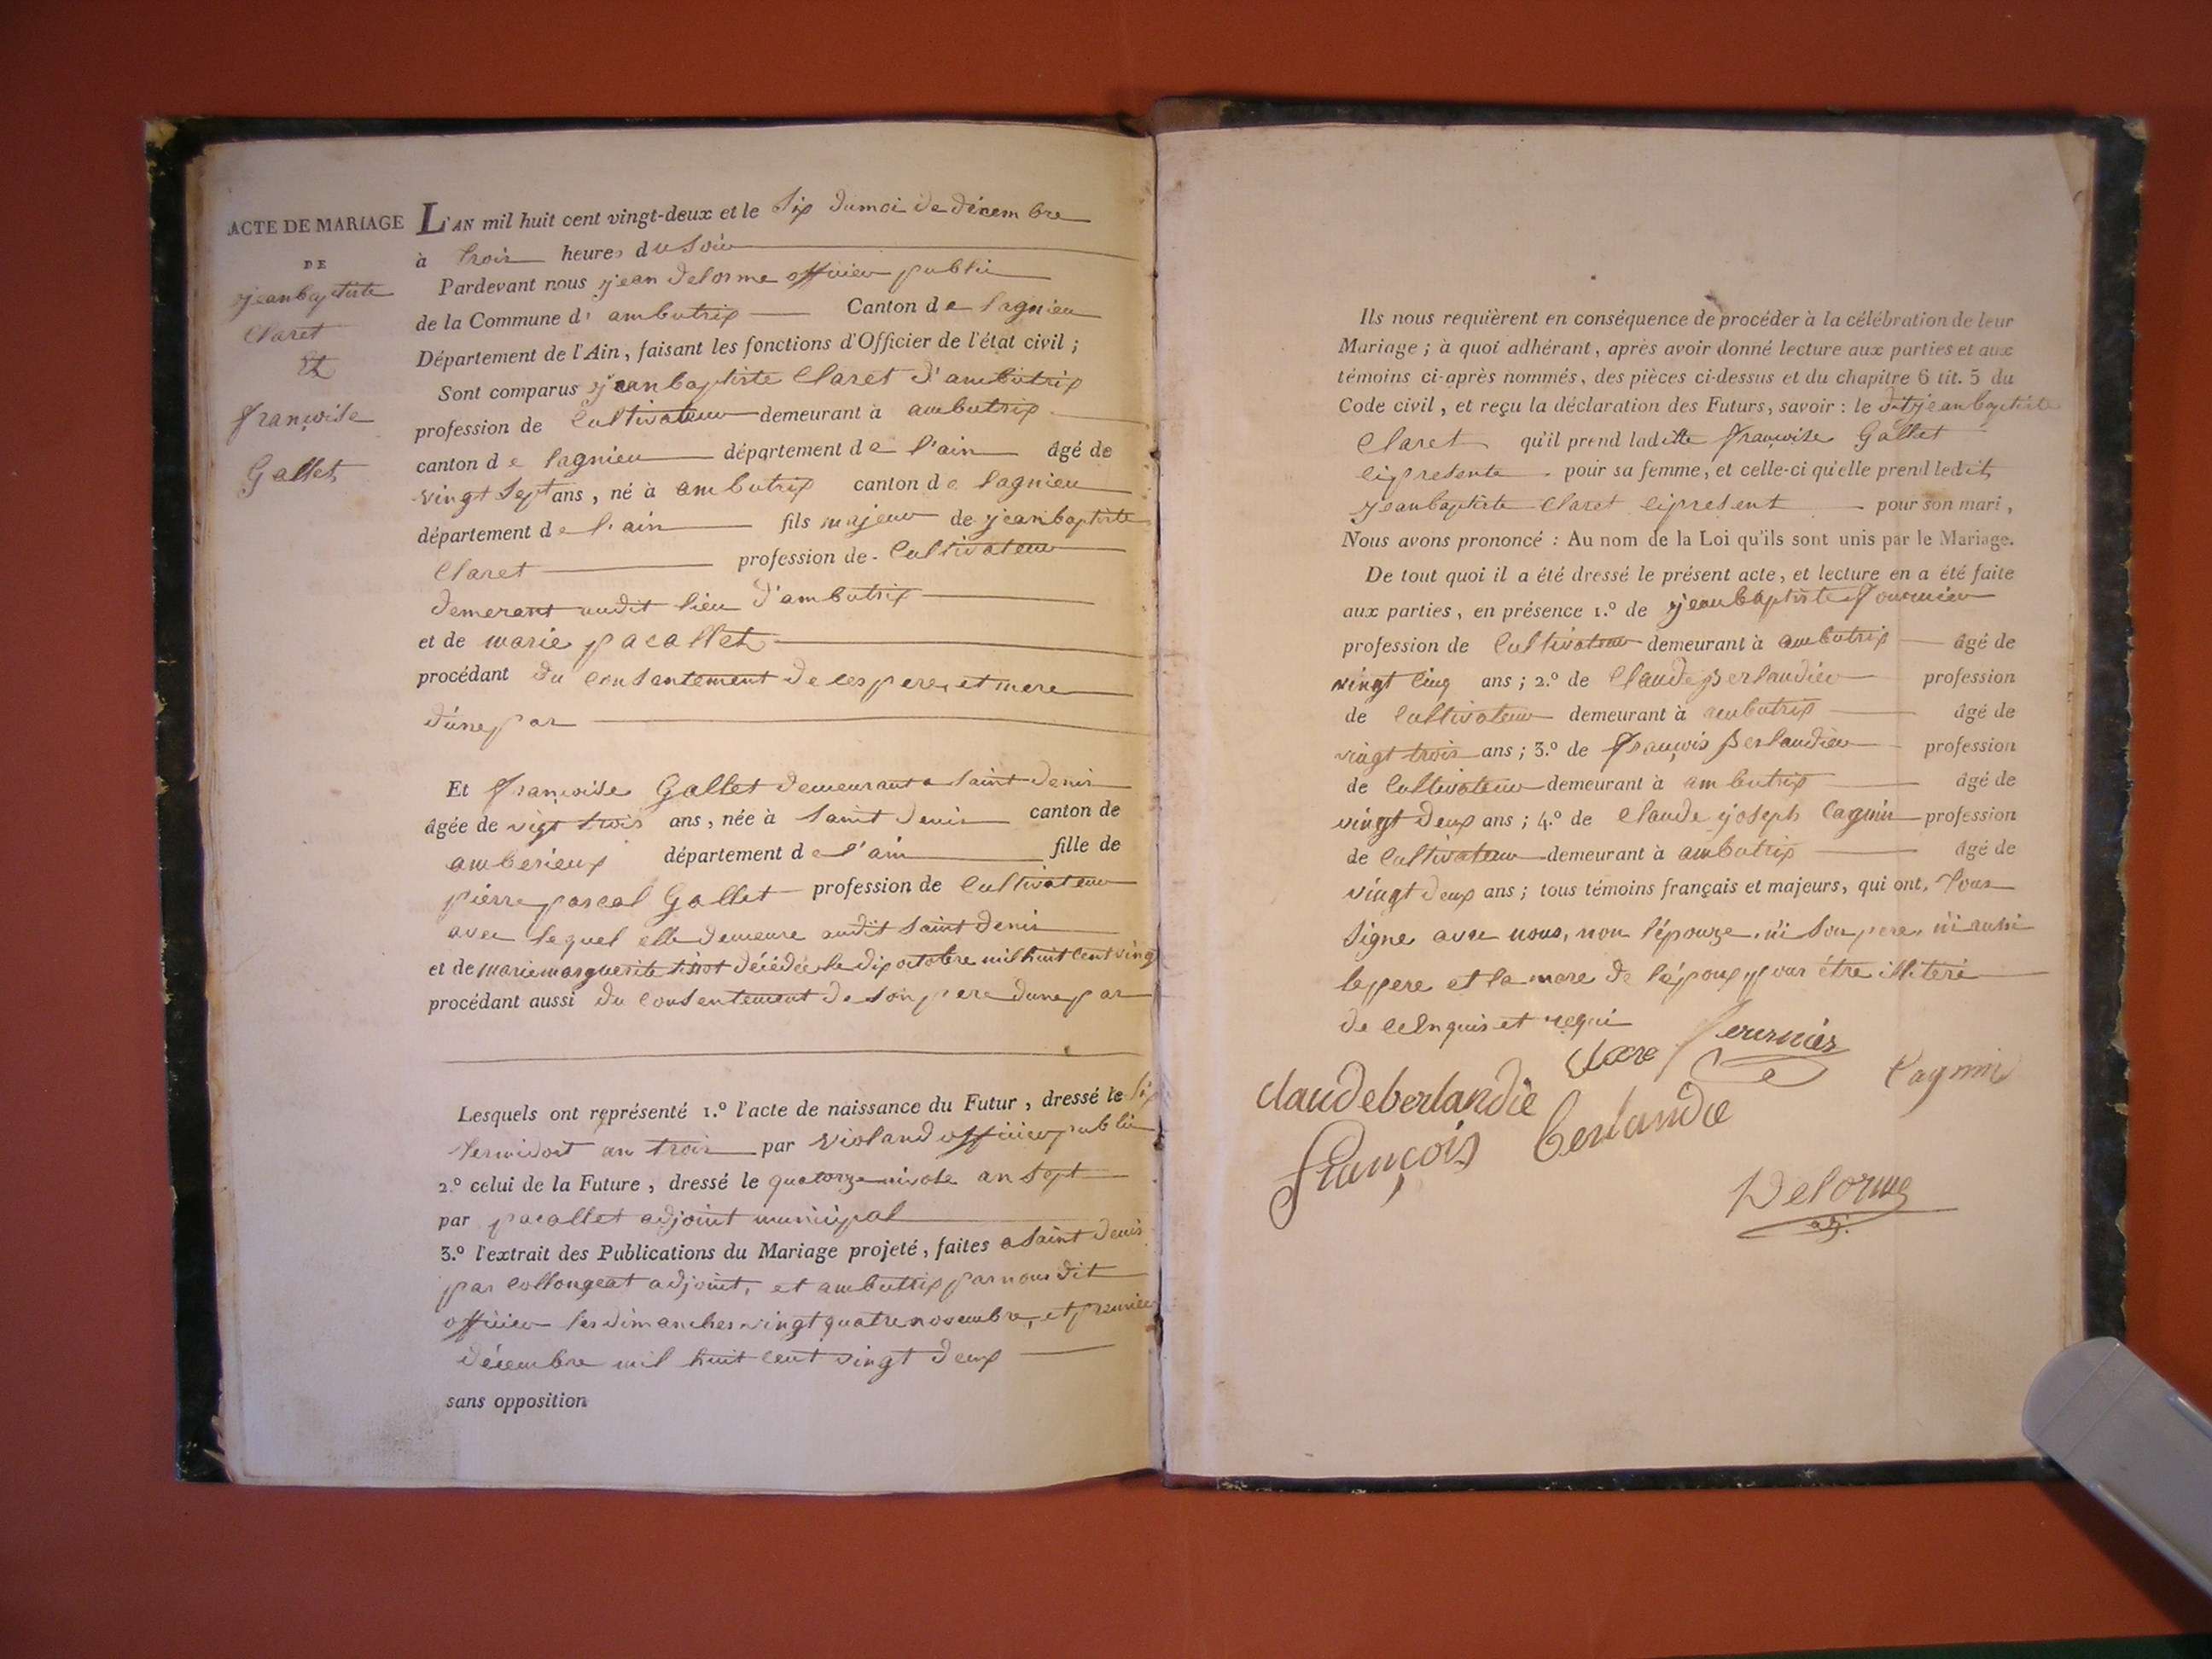 ACTE DE MARIAGE
DE
jeanbaptiste
Claret
Et
françoise
Gallet
L'AN mil huit cent vingt-deux et le Six dumoi de décembre
à trois heures du Soir
Pardevant nous jean delorme officier public
de la Commune d' ambutrix Canton de lagnieu
Département de l'Ain, faisant les fonctions d'Officier de l'état civil ;
Sont comparus jeanbaptiste Claret d'ambutrix
profession de Cultivateur demeurant à ambutrix
canton de lagnieu département de l'ain âgé de
vingt Sept ans, né à ambutrix canton de lagnieu
département de l'ain fils majeur de jeanbaptiste
Claret profession de Cultivateur
demerant audit lieu d'ambutrix
et de marie pacallet
procédant du consentement de ces pere et mere
d'une par
Et françoise Gallet demeurant a Saint denis
âgée de vigt trois ans, née à Saint denis canton de
amberieux département de l'ain fille de
pierre pascal Gallet profession de Cultivateur
avec lequel elle demeure audit Saint denis
et de mariemarguerite tissot décédée le dix octobre mil huit cent vingt
procédant aussi du consentement de son pere dune par
Lesquels ont représenté 1.º l'acte de naissance du Futur, dressé le Six
termidort an trois par violand officier public
2.º celui de la Future, dressé le quatorze nivose an Sept
par pacallet adjoint municipal
3.º l'extrait des Publications du Mariage projeté, faites a Saint denis
par collongeat adjoint, et ambuttrix par nous dit
officier les dimanches vingt quatre novembre, et premier
décembre mil huit cent vingt deux
sans opposition
Ils nous requièrent en conséquence de procéder à la célébration de leur
Mariage ; à quoi adhérant, après avoir donné lecture aux parties et aux
témoins ci-après nommés, des pièces ci-dessus et du chapitre 6 tit. 5 du
Code civil, et reçu la déclaration des Futurs, savoir : le dit jeanbaptiste
Claret qu'il prend laditte françoise Gallet
cipresente pour sa femme, et celle-ci qu'elle prend ledit
jeanbaptiste Claret cipresent pour son mari,
Nous avons prononcé : Au nom de la Loi qu'ils sont unis par le Mariage.
De tout quoi il a été dressé le présent acte, et lecture en a été faite
aux parties, en présence 1.º de jeanbaptiste fournier
profession de Cultivateur demeurant à ambutrix âgé de
vingt cinq ans ; 2.º de Claude Berlandier profession
de Cultivateur demeurant à ambutrix âgé de
vingt trois ans ; 3.º de françois Berlandier profession
de Cultivateur demeurant à ambutrix âgé de
vingt deux ans ; 4.º de Claude joseph Cagnin profession
de Cultivateur demeurant à ambutrix âgé de
vingt deux ans ; tous témoins français et majeurs, qui ont, tous
Signe avec nous, non l'épouze, ni son pere, ni aussi
le pere et la mere de l'époux pour être illiteré
de ce enquis et requi
Clare fournier
claudeberlandie Cagnin
françois berlandie
Delorme
adj.